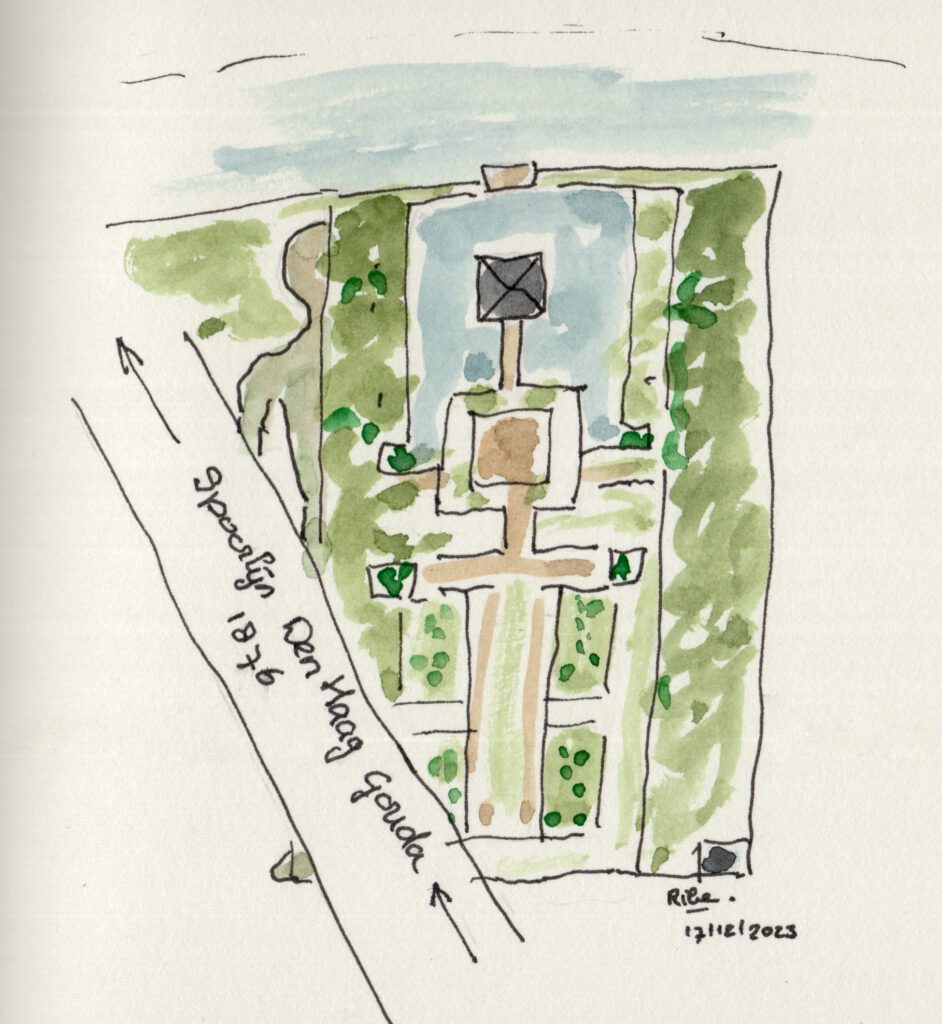 Spoorlijn Den Haag Gouda
1876
Ribe.
17/12/2023